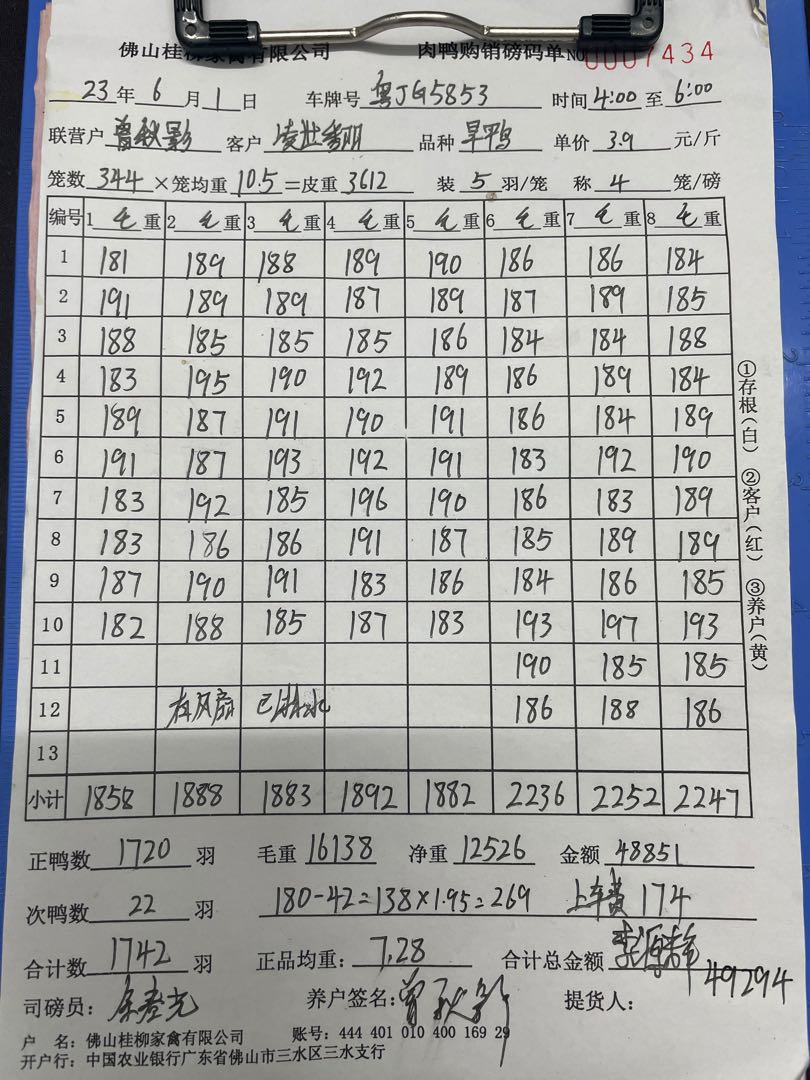 佛山桂柳家禽有限公司 肉鸭购销磅码单 NO 0007434
23 年 6 月 1 日 车牌号 粤JG5853 时间 4:00 至 6:00
联营户 曾秋影 客户 品种 旱鸭 单价 3.9 元/斤
笼数 344 ×笼均重 10.5 =皮重 3612 装 5 羽/笼 称 4 笼/磅
编号 1 毛 重 2 毛 重 3 毛 重 4 毛 重 5 毛 重 6 毛 重 7 毛 重 8 毛 重
1 181 189 188 189 190 186 186 184
2 191 189 189 187 189 187 189 185
3 188 185 185 185 186 184 184 188
4 183 195 190 192 189 186 189 184
5 189 187 191 190 191 186 184 189
6 191 187 193 192 191 183 192 190
7 183 192 185 196 190 186 183 189
8 183 186 186 191 187 185 189 189
9 187 190 191 183 186 184 186 185
10 182 188 185 187 183 193 197 193
11 190 185 185
12 有风扇 已淋水 186 188 186
13
小计 1858 1888 1883 1892 1882 2236 2252 2247
正鸭数 1720 羽 毛重 16138 净重 12526 金额 48851
次鸭数 22 羽 180-42=138×1.95=269 上车费 174
合计数 1742 羽 正品均重: 7.28 合计总金额 49294
司磅员: 养户签名: 曾秋影 提货人:
户 名: 佛山桂柳家禽有限公司 账号: 444 401 010 400 169 29
开户行: 中国农业银行广东省佛山市三水区三水支行
①存根(白) ②客户(红) ③养户(黄)